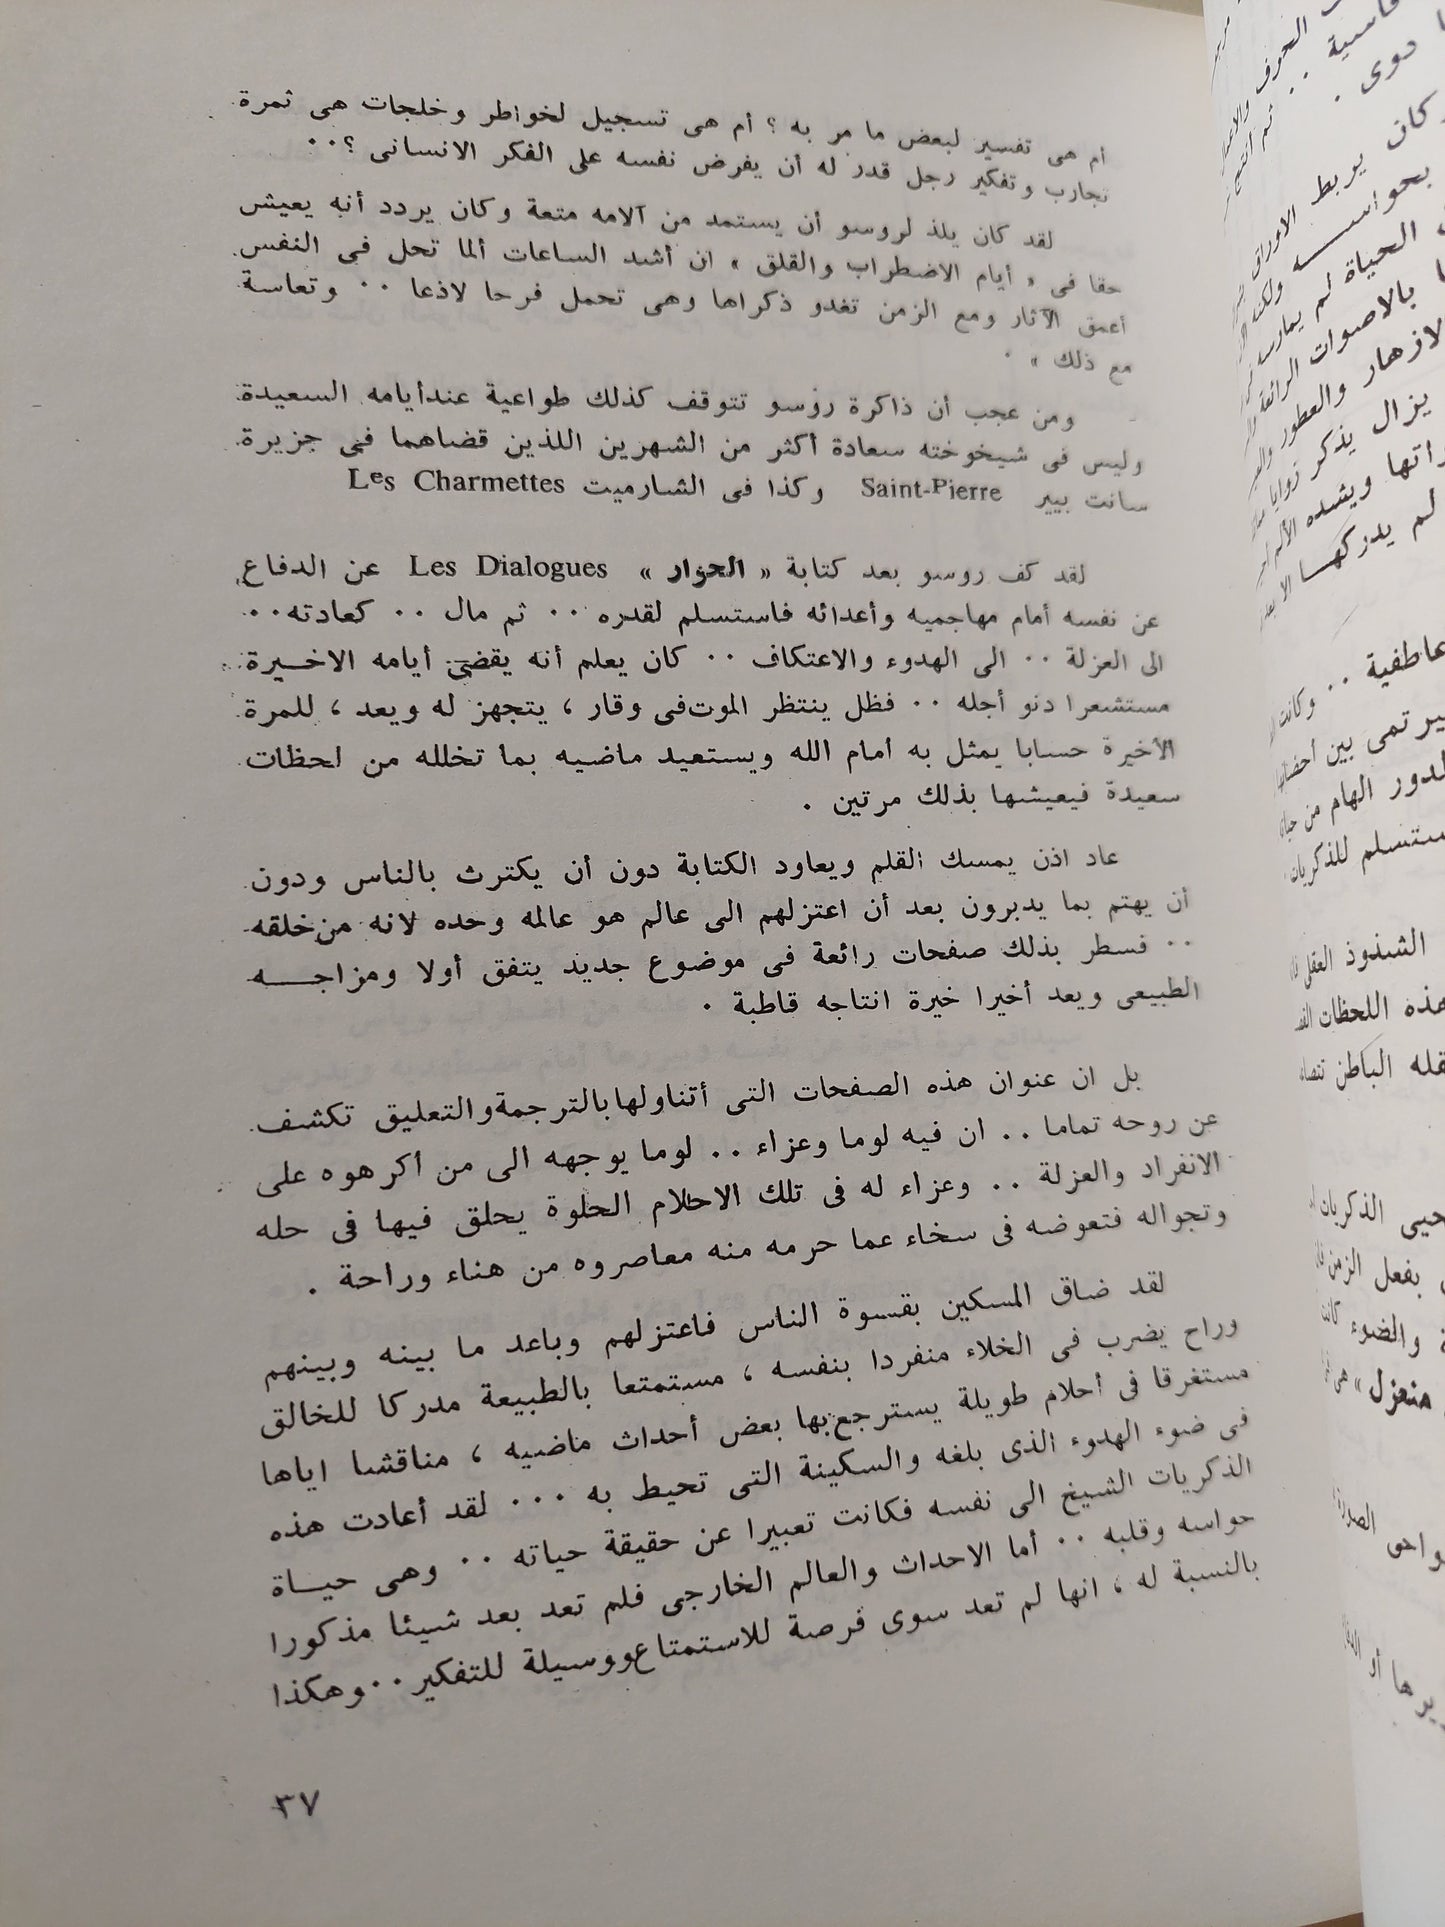 أم هى تفسير لبعض ما مر به ؟ أم هى تسجيل لخواطر وخلجات هى ثمرة
تجارب وتفكير رجل قدر له أن يفرض نفسه على الفكر الانسانى ؟٠٠
لقد كان يلذ لروسو أن يستمد من آلامه متعة وكان يردد أنه يعيش
حقا فى « أيام الاضطراب والقلق » ان أشد الساعات ألما تحل فى النفس
أعمق الآثار ومع الزمن تغدو ذكراها وهى تحمل فرحا لاذعا ٠٠ وتعاسة
مع ذلك » ٠
ومن عجب أن ذاكرة روسو تتوقف كذلك طواعية عندأيامه السعيدة
وليس فى شيخوخته سعادة أكثر من الشهرين اللذين قضاهما فى جزيرة
سانت بيير Saint-Pierre وكذا فى الشارميت Les Charmettes
لقد كف روسو بعد كتابة « الحوار » Les Dialogues عن الدفاع
عن نفسه أمام مهاجميه وأعدائه فاستسلم لقدره ٠٠ ثم مال ٠٠ كعادته٠٠
الى العزلة ٠٠ الى الهدوء والاعتكاف ٠٠ كان يعلم أنه يقضى أيامه الاخيرة
مستشعرا دنو أجله ٠٠ فظل ينتظر الموت فى وقار ، يتجهز له ويعد ، للمرة
الأخيرة حسابا يمثل به أمام الله ويستعيد ماضيه بما تخلله من لحظات
سعيدة فيعيشها بذلك مرتين ٠
عاد اذن يمسك القلم ويعاود الكتابة دون أن يكترث بالناس ودون
أن يهتم بما يدبرون بعد أن اعتزلهم الى عالم هو عالمه وحده لانه من خلقه
٠٠ فسطر بذلك صفحات رائعة فى موضوع جديد يتفق أولا ومزاجـــه
الطبيعى ويعد أخيرا خيرة انتاجه قاطبة ٠
بل ان عنوان هذه الصفحات التى أتناولها بالترجمة والتعليق تكشف
عن روحه تماما ٠٠ ان فيه لوما وعزاء ٠٠ لوما يوجهه الى من أكرهوه على
الانفراد والعزلة ٠٠ وعزاء له فى تلك الاحلام الحلوة يحلق فيها فى حله
وتجواله فتعوضه فى سخاء عما حرمه منه معاصروه من هناء وراحة ٠
لقد ضاق المسكين بقسوة الناس فاعتزلهم وباعد ما بينه وبينهم
وراح يضرب فى الخلاء منفردا بنفسه ، مستمتعا بالطبيعة مدركا للخالق
مستغرقا فى أحلام طويلة يسترجع بها بعض أحداث ماضيه ، مناقشا اياها
فى ضوء الهدوء الذى بلغه والسكينة التى تحيط به ٠٠٠ لقد أعادت هذه
الذكريات الشيخ الى نفسه فكانت تعبيرا عن حقيقة حياته ٠٠ وهى حيـاة
حواسه وقلبه ٠٠ أما الاحداث والعالم الخارجى فلم تعد بعد شيئا مذكورا
بالنسبة له ، انها لم تعد سوى فرصة للاستمتاع ووسيلة للتفكير ٠٠ وهكذا
٣٧